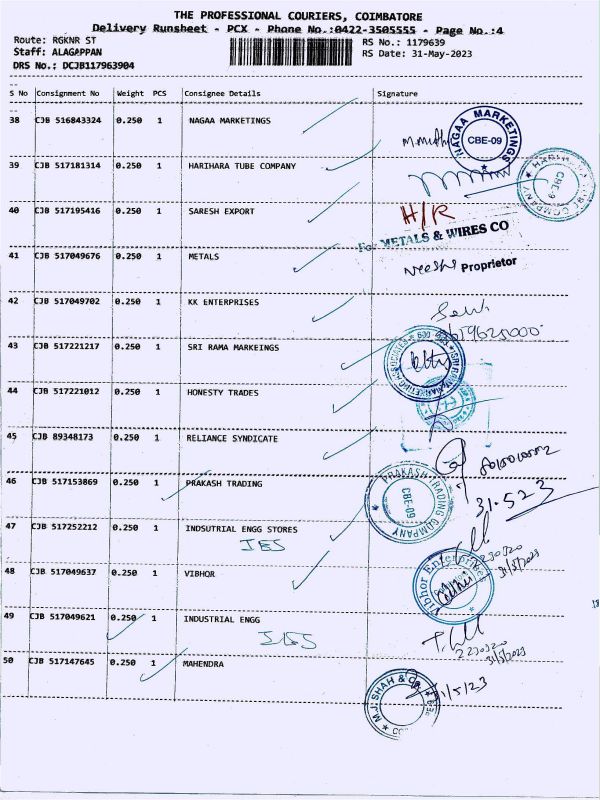 THE PROFESSIONAL COURIERS, COIMBATORE
Delivery Runsheet - PCX - Phone No.:0422-3505555 - Page No.:4
Route: RGKNR ST
RS No.: 1179639
Staff: ALAGAPPAN
RS Date: 31-May-2023
DRS No.: DCJB117963904
S No Consignment No Weight PCS Consignee Details Signature
38 CJB 516843324 0.250 1 NAGAA MARKETINGS
NAGAA MARKETINGS CBE-09
39 CJB 517181314 0.250 1 HARIHARA TUBE COMPANY
CBE-9
40 CJB 517195416 0.250 1 SARESH EXPORT
H/R
For METALS & WIRES CO
41 CJB 517049676 0.250 1 METALS
Proprietor
42 CJB 517049702 0.250 1 KK ENTERPRISES
43 CJB 517221217 0.250 1 SRI RAMA MARKEINGS
44 CJB 517221012 0.250 1 HONESTY TRADES
45 CJB 89348173 0.250 1 RELIANCE SYNDICATE
46 CJB 517153869 0.250 1 PRAKASH TRADING
PRAKASH TRADING COMPANY CBE-09
31.5.23
47 CJB 517252212 0.250 1 INDSUTRIAL ENGG STORES
IES
230320
31/5/2023
48 CJB 517049637 0.250 1 VIBHOR
Vibhor Enterprises
49 CJB 517049621 0.250 1 INDUSTRIAL ENGG
IES
230320
31/5/2023
50 CJB 517147645 0.250 1 MAHENDRA
M.J. SHAH & Co
31/5/23